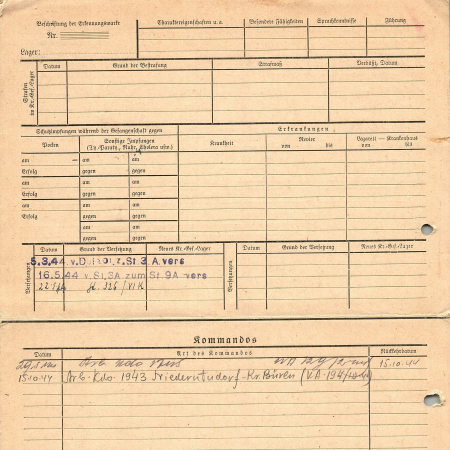 Beschriftung der Erkennungsmarke
Nr.
Lager:
Charaktereigenschaften u. a.
Besondere Fähigkeiten
Sprachkenntnisse
Führung
Strafen im Kr.-Gef.-Lager
Datum
Grund der Bestrafung
Strafmaß
Verbüßt, Datum
Schutzimpfungen während der Gefangenschaft gegen
Erkrankungen
Pocken
Sonstige Impfungen
(Ty.-Paraty., Ruhr, Cholera usw.)
Krankheit
Revier
von bis
Lazarett – Krankenhaus
von bis
am am am
Erfolg gegen gegen
am am am
Erfolg gegen gegen
am am am
Erfolg gegen gegen
am am
gegen gegen
Versetzungen
Datum
Grund der Versetzung
Neues Kr.-Gef.-Lager
Versetzungen
Datum
Grund der Versetzung
Neues Kr.-Gef.-Lager
5.3.44 v. z. St 3 A vers
16.5.44 v. St.3A zum St.9A vers
326/VI K
Kommandos
Datum
Art des Kommandos
Rückkehrdatum
Arb Kdo 15.10.44
15.10.44 Arb.-Kdo. 1943 Niederntudorf-Kr. Büren (VA-194/